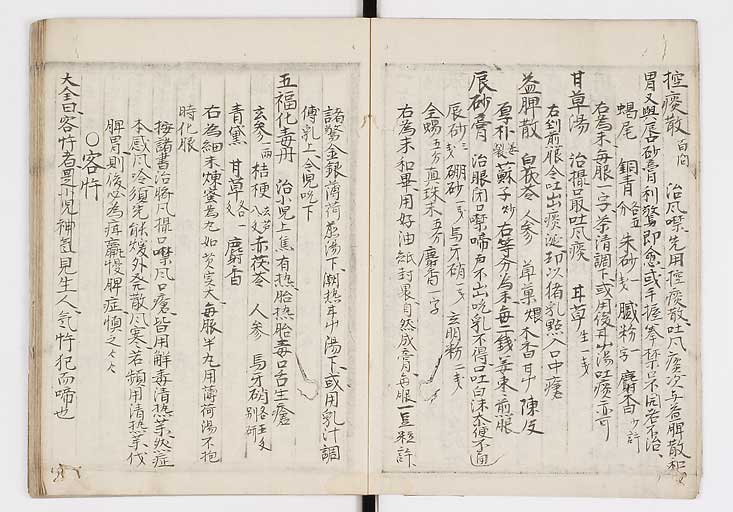 控痰散 治風噤先用控痰散吐風痰次与益脾散和
胃又與辰砂膏利驚即愈或手握拳 不治
蝎尾 銅青 各五分 朱砂 一戋 膩粉 一字 麝香 少許
右為末每服一字茶清調下或用後甘草湯吐痰亦可
甘草湯 治撮口取吐風痰 甘草 生一戋
右剉煎服令吐出痰涎却以猪乳點入口中瘥
益脾散 白茯苓 人参 草菓 煨 木香 甘草 陳皮
厚朴 蘇子 炒 右等分為末每二錢姜枣煎服
辰砂膏 治眼閉口噤啼声不出吮乳不得口吐白沫大便不通
辰砂 三戋 硼砂 一戋 馬牙硝 一戋 玄明粉 二戋
全蝎 五分 真珠末 五分 麝香 一字
右為末和畢用好油紙封裹自然成膏每服一豆粒許
諸驚金銀薄荷湯下潮热甘草湯下或用乳汁調
傅乳上令兒吮下
五福化毒丹 治小児上焦有热胎热胎毒口舌生瘡
玄参 一两 桔梗 赤茯苓 人参 馬牙硝
青黛 甘草 麝香
右為細末煉蜜為丸如芡实大每服半丸用薄荷湯不拘
時化服
按諸書治臍風撮口噤風口瘡皆用解毒清热茅然症
本感風冷須先煖外発散風寒若頻用清热茅伐
脾胃則後必為疳羸慢脾症慎之々々
○客忤
大全曰客忤者是小児神氣見生人氣忤犯而啼也